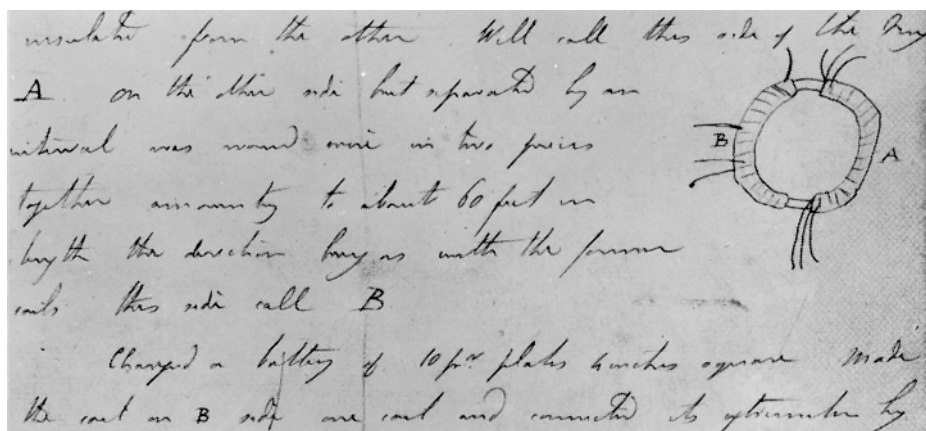 insulated from the other. Will call this side of the Ring
A on the other side but separated by an
interval was wound wire in two pieces
together amounting to about 60 feet in
length the direction being as with the former
coils this side call B
Charged a battery of 10 pr. plates 4 inches square Made
the coil on B side one coil and connected its extremities by
B
A